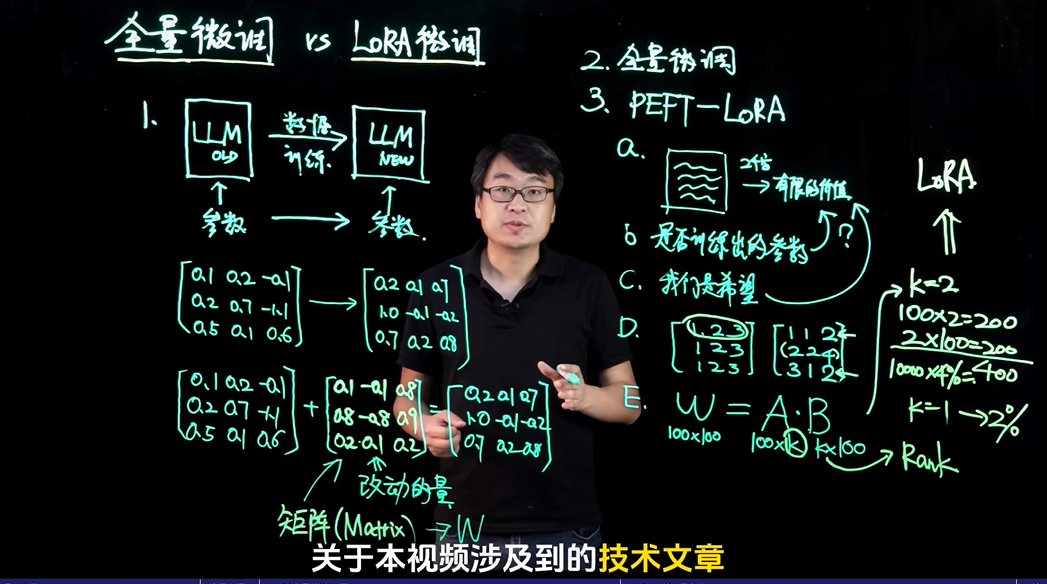 全量微调 vs LoRA微调
1.
LLM OLD
数据
训练
LLM NEW
参数
参数
0.1 0.2 -0.1
0.2 0.7 -1.1
0.5 0.1 0.6
0.2 0.1 0.7
1.0 -0.1 -0.2
0.7 0.2 0.8
0.1 0.2 -0.1
0.2 0.7 -1.1
0.5 0.1 0.6
+
0.1 -0.1 0.8
0.8 -0.8 0.9
0.2 -0.1 0.2
=
0.2 0.1 0.7
1.0 -0.1 -0.2
0.7 0.2 0.8
改动的量
矩阵(Matrix) → W
2. 全量微调
3. PEFT-LoRA
a.
有限的价值
b 是否训练出的参数
?
C. 我们是希望
D.
1 2 3
1 2 3
1 2 3
1 1 2
2 2 4
3 1 2
E. W = A·B
100x100
100xk
kx100
Rank
LoRA
k=2
100x2=200
2x100=200
10000x4%=400
k=1 →2%
关于本视频涉及到的技术文章